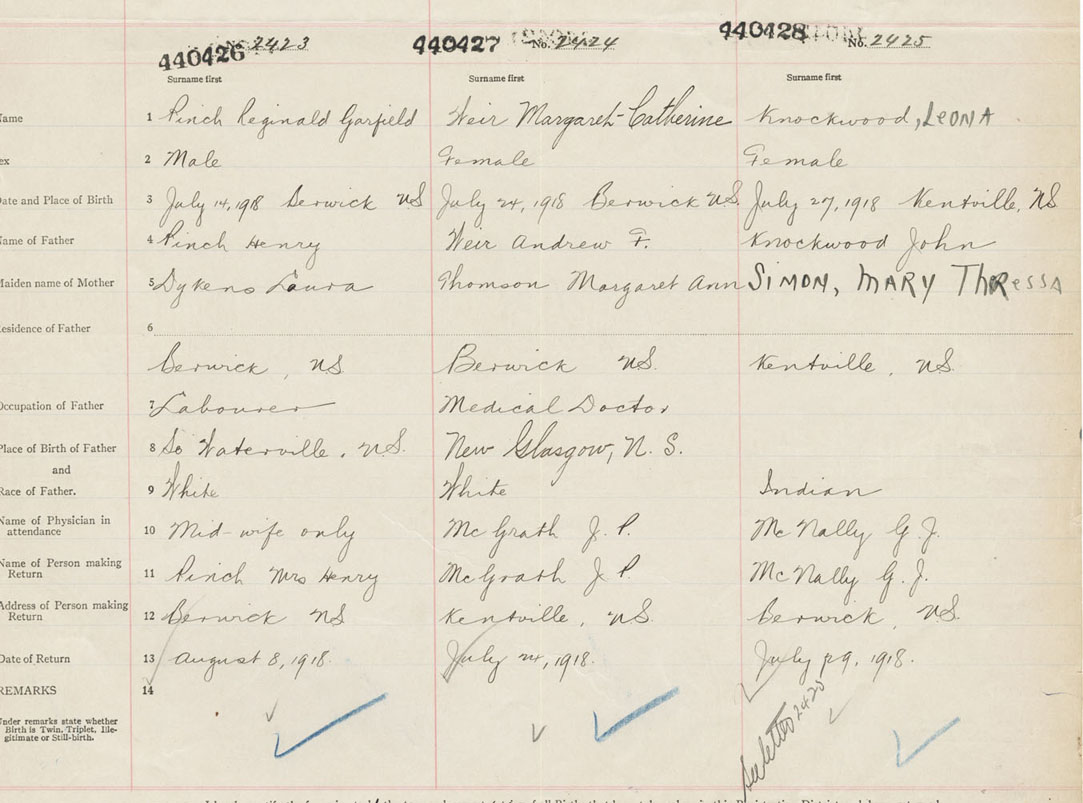 440426 No. 2423 440427 No. 2424 440428 No. 2425
Surname first Surname first Surname first
Name 1 Pinch Reginald Garfield Weir Margaret Catherine Knockwood, LEONA
ex 2 Male Female Female
Date and Place of Birth 3 July 14, 1918 Berwick NS July 24, 1918 Berwick NS. July 27, 1918 Kentville, NS
Name of Father 4 Pinch Henry Weir Andrew F. Knockwood John
Maiden name of Mother 5 Dykens Laura Thomson Margaret Ann SIMON, MARY ThRessA
Residence of Father 6
Berwick, NS. Berwick NS. Kentville, NS.
Occupation of Father 7 Labourer Medical Doctor
Place of Birth of Father 8 So Waterville, NS. New Glasgow, N. S.
and
Race of Father. 9 White White Indian
Name of Physician in
attendance 10 Mid-wife only McGrath J. P. McNally G. J.
Name of Person making
Return 11 Pinch Mrs Henry McGrath J P. McNally G. J.
Address of Person making
Return 12 Berwick NS Kentville, NS. Berwick, NS.
Date of Return 13 August 8, 1918. July 24, 1918. July 29, 1918.
REMARKS 14
Under remarks state whether
Birth is Twin, Triplet, Ille-
gitimate or Still-birth.
See letter 2425